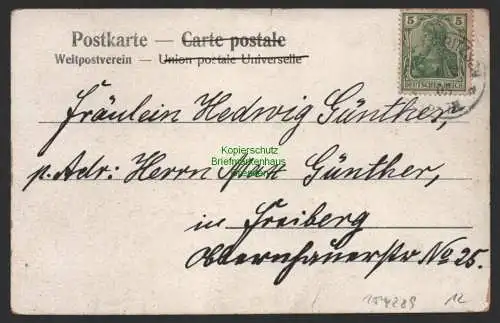 Postkarte — Carte postale
Weltpostverein — Union postale Universelle
5 5
DEUTSCHES REICH
Fräulein Hedwig Günther,
Kopierschutz
Briefmarkenhaus
p. Adr: Herrn Max Günther,
in Freiberg
Obernhauerstr No 25.
12